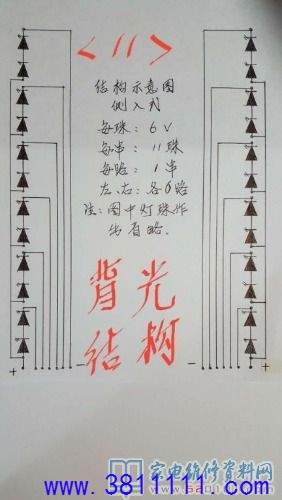 <11>
结构示意图
侧入式
每珠：6V
每串：11珠
每路：1串
左、右：各6路
注：图中灯珠作
出省略.
背光
结构
+ - - +
家电维修资料网
www.3811111.com